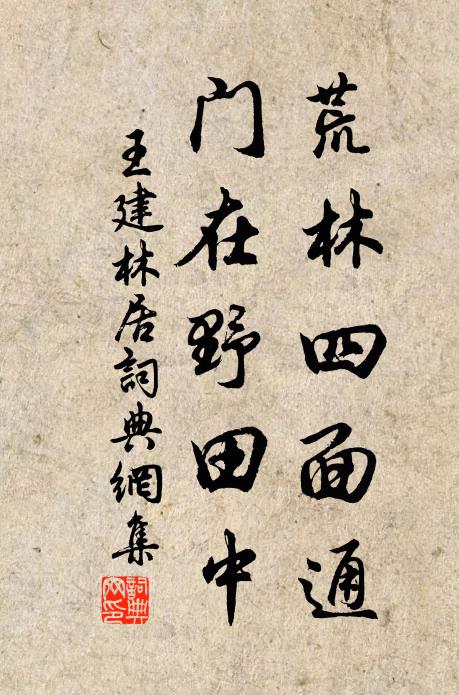 荒林四面通
門在野田中
王建林居詞典網集
詞典網印